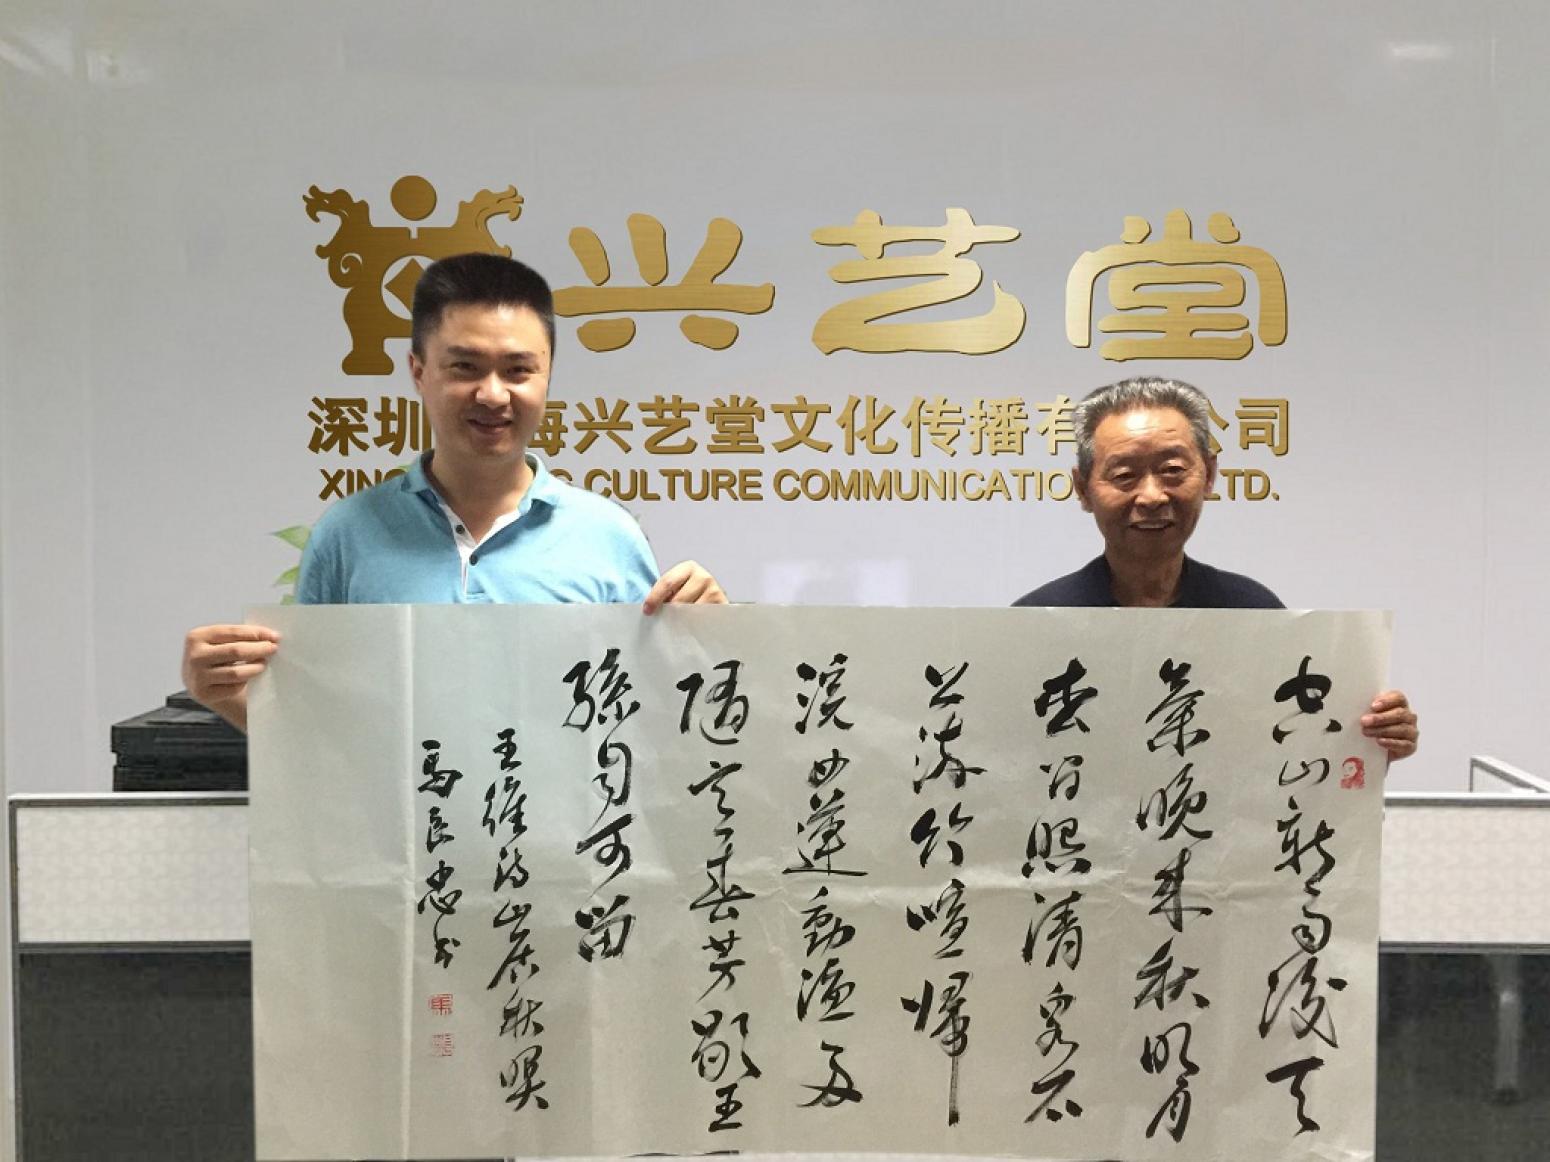 兴艺堂
深圳 海兴艺堂文化传播有 公司
CULTURE COMMUNICATIO LTD.
空山新雨後天
氣晚来秋明月
松間照清泉石
上流竹喧歸
浣女蓮動漁舟
隨意春芳歇王
孫自可留
王維詩山居秋暝
馬良忠书